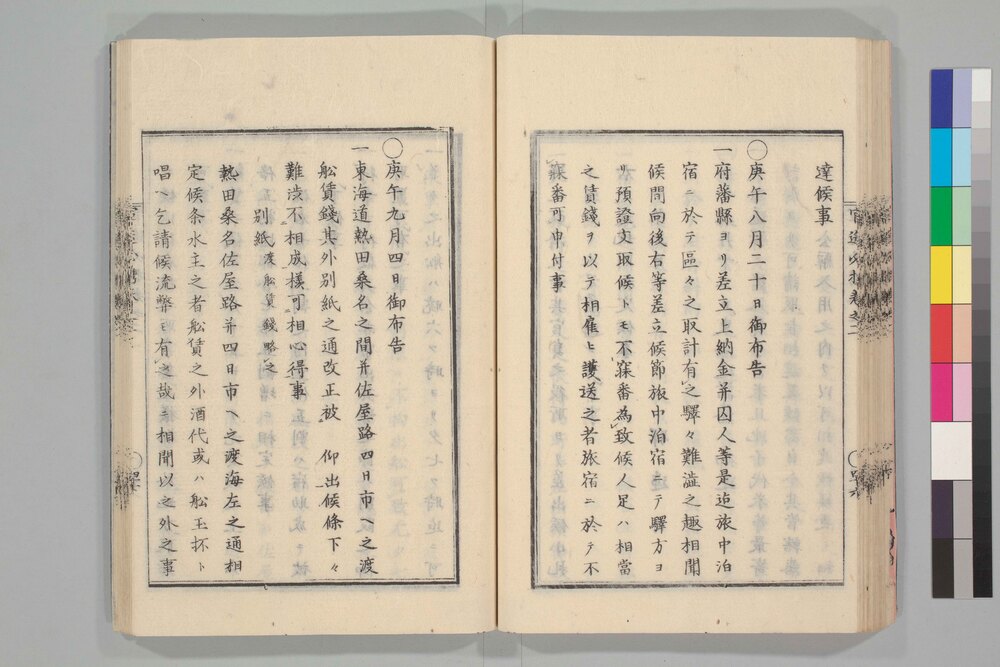 達候事
〇庚午八月二十日御布告
一府藩縣ヨリ差立上納金并囚人等是迄旅中泊
宿ニ於テ區々之取計有之驛々難澁之趣相聞
候問向後右等差立候節旅中泊宿ニテ驛方ヨ
リ預證文取候トモ不寐番為致候人足ハ相當
之賃錢ヲ以テ相雇ヒ護送之者旅宿ニ於テ不
寐番可申付事
〇庚午九月四日御布告
一東海道熱田桑名之間并佐屋路四日市ヘ之渡
舩賃錢其外別紙之通改正被 仰出候條下々
難渋不相成樣可相心得事
別紙渡舩賃錢略之
熱田桑名佐屋路并四日市ヘ之渡海左之通相
定候条水主之者舩賃之外酒代或ハ舩玉抔ト
唱ヘ乞請候流弊モ有之哉ニ相聞以之外之事